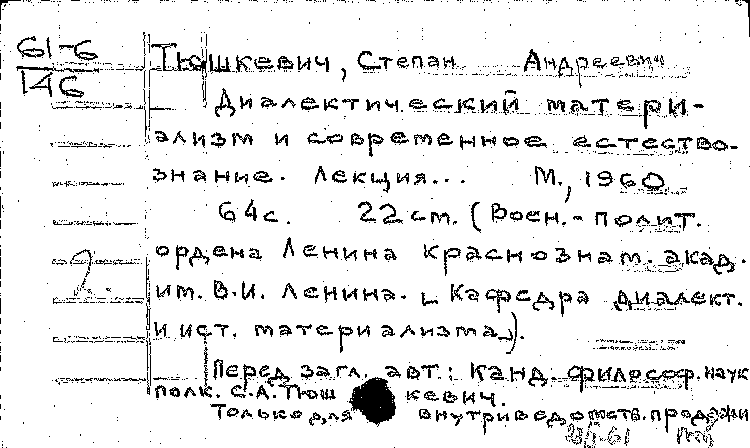 61-6
146
Тюшкевич, Степан Андреевич
Диалектический матери-
ализм и современное естество-
знание. Лекция... М., 1960
64с. 22 см. (Воен.-полит.
ордена Ленина краснознам. акад.
им. В.И. Ленина. [Кафедра диалект.
и ист. материализма]).
Перед загл. авт.: Канд. философ. наук
полк. С.А. Тюшкевич.
Только для внутриведомств. продажи